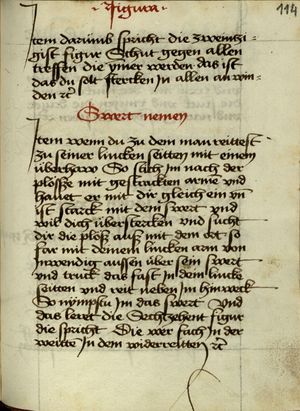 Figura
114
Item darumb spricht die zwentzi-
gist figur Schut gegen allen
treffen die ymer werden das ist
das du solt stercken in allen an win-
den etc
Swert nemen
Item wenn du zu dem man reittest
zu seiner lincken seitten mit einem
überhaw So stich im nach der
plösse mit gestrackten arme vnd
hauet er mit dir gleich ein vnd
ist starck mit dem swert vnd
wil dich überstercken vnd sucht
dir die plöß auß mit dem ort so
far mit deinem lincken arm von
inwendig aussen über sein swert
vnd truck das fast in dein lincke
seitten vnd reit neben im hinweck
So nympstu im das swert Vnd
das leret die Sechtzehent figur
die spricht Die wer fach in der
weitte in dem widerreitten etc